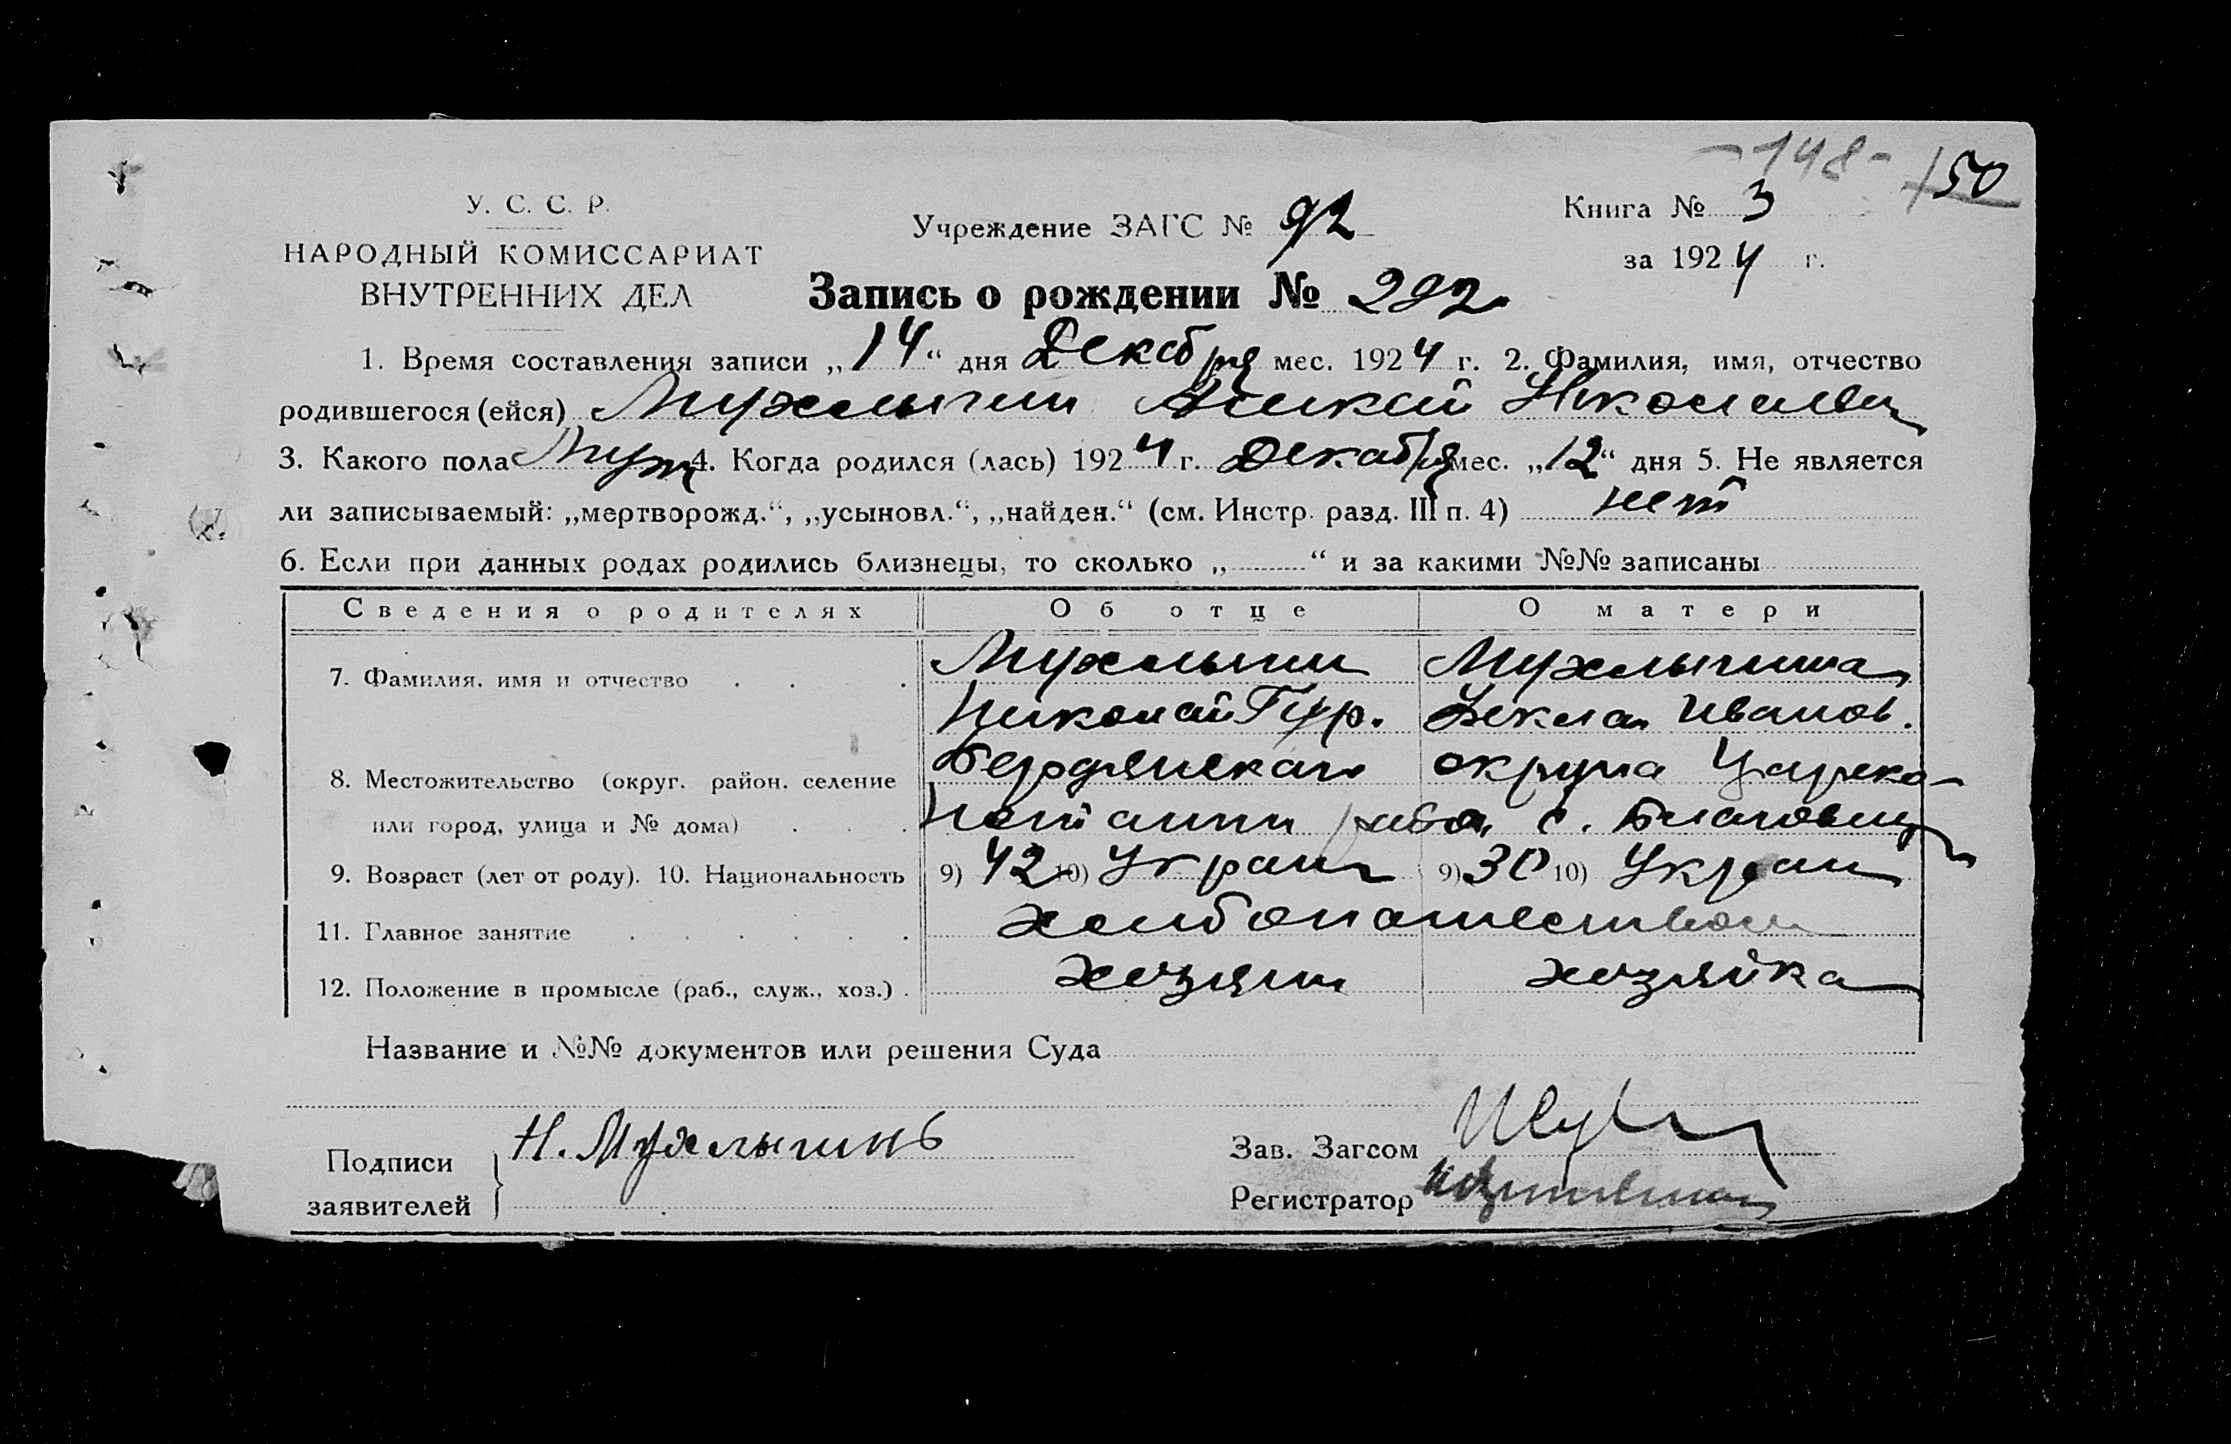 -148-
150
У. С. С. Р.
НАРОДНЫЙ КОМИССАРИАТ
ВНУТРЕННИХ ДЕЛ
Учреждение ЗАГС № 92
Книга № 3
за 1924 г.
Запись о рождении № 292
1. Время составления записи „14“ дня Декабря мес. 1924 г. 2. Фамилия, имя, отчество
родившегося (ейся) Мухлынин Николаевич
3. Какого пола Муж 4. Когда родился (лась) 1924 г. Декабря мес. „12“ дня 5. Не является
ли записываемый: „мертворожд.“, „усыновл.“, „найден.“ (см. Инстр. разд. III п. 4) нет
6. Если при данных родах родились близнецы, то сколько „ “ и за какими №№ записаны
Сведения о родителях Об отце О матери
7. Фамилия, имя и отчество Мухлынин Мухлынина
Николай Фекла Иванов.
8. Местожительство (округ, район, селение Бердянскаго округа Царекон-
или город, улица и № дома) с.
9. Возраст (лет от роду). 10. Национальность 9) 42 10) Украин 9) 30 10) Украин
11. Главное занятие хлебопашеством
12. Положение в промысле (раб., служ., хоз.) хозяин хозяйка
Название и №№ документов или решения Суда
Подписи
заявителей
Н. Мухлынинъ
Зав. Загсом
Регистратор